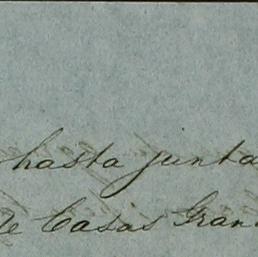 hasta junta
de Casas Gran